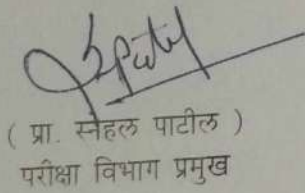 ( प्रा. स्नेहल पाटील )
परीक्षा विभाग प्रमुख